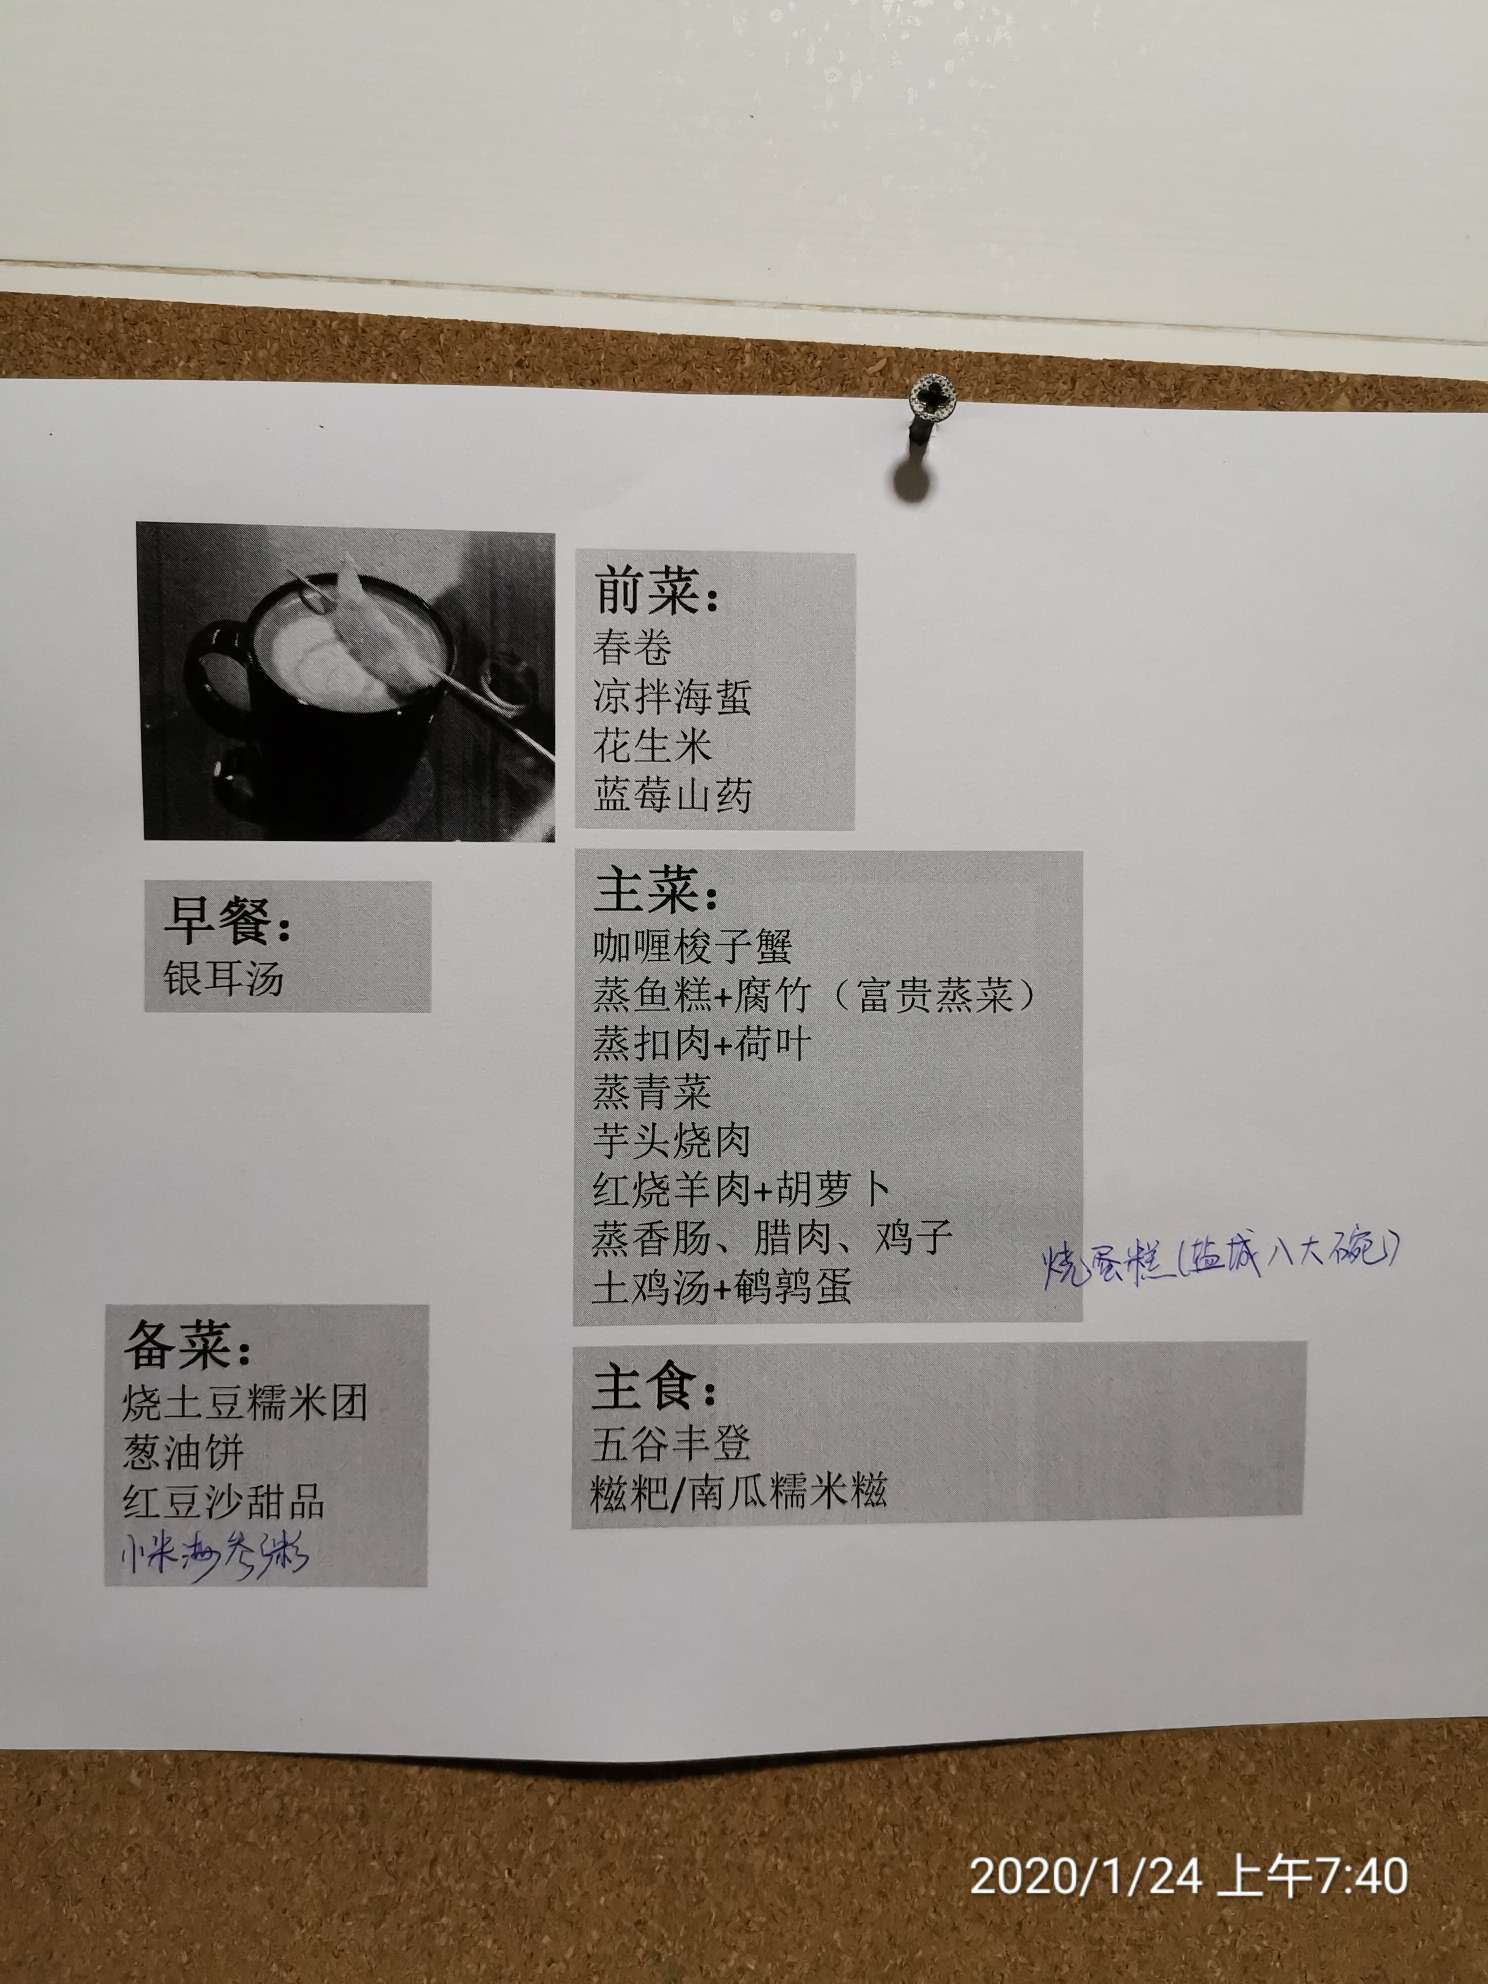 前菜：
春卷
凉拌海蜇
花生米
蓝莓山药
早餐：
银耳汤
主菜：
咖喱梭子蟹
蒸鱼糕+腐竹（富贵蒸菜）
蒸扣肉+荷叶
蒸青菜
芋头烧肉
红烧羊肉+胡萝卜
蒸香肠、腊肉、鸡子
土鸡汤+鹌鹑蛋
烧蛋糕(盐城八大碗)
备菜：
烧土豆糯米团
葱油饼
红豆沙甜品
小米海参粥
主食：
五谷丰登
糍粑/南瓜糯米糍
2020/1/24 上午7:40